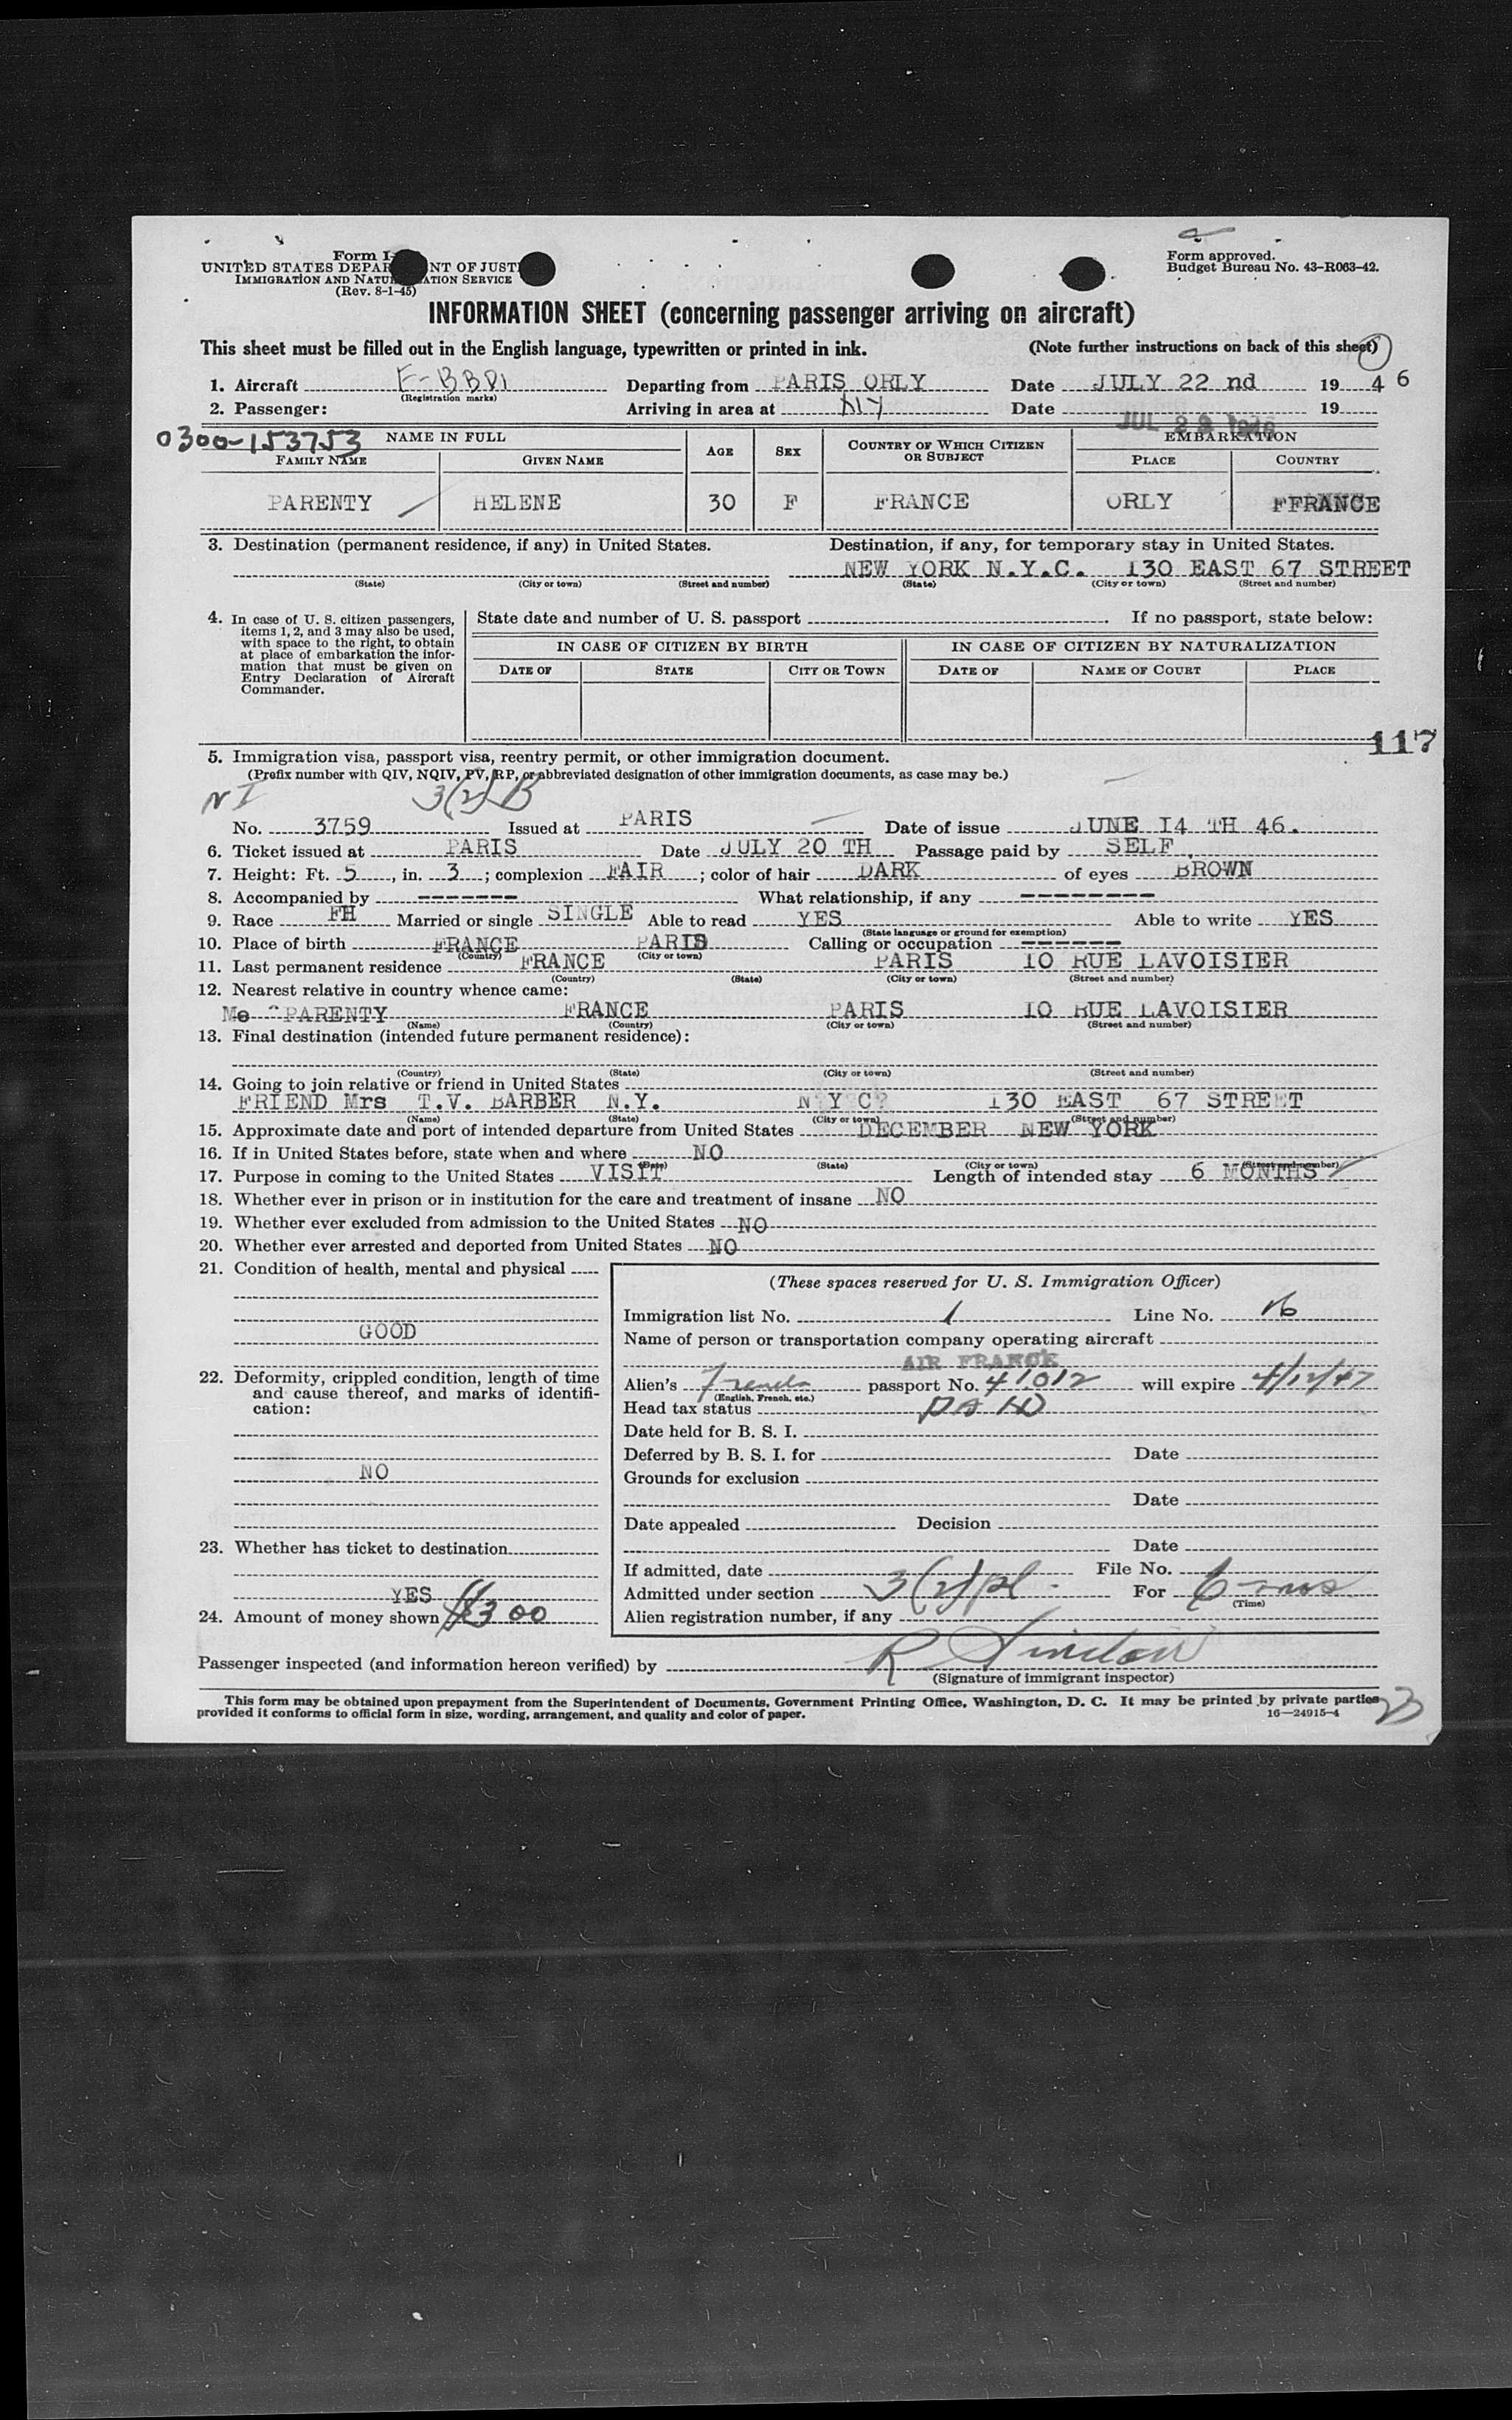 Form I-
UNITED STATES DEPAR NT OF JUST
IMMIGRATION AND NATU ATION SERVICE
(Rev. 8-1-45)
Form approved.
Budget Bureau No. 43-R063-42.
INFORMATION SHEET (concerning passenger arriving on aircraft)
This sheet must be filled out in the English language, typewritten or printed in ink. (Note further instructions on back of this sheet)
1. Aircraft Departing from PARIS ORLY Date JULY 22 nd 19 4 6
(Registration marks)
2. Passenger: Arriving in area at NY Date JUL 1946 19
0300-153753 NAME IN FULL AGE SEX COUNTRY OF WHICH CITIZEN OR SUBJECT EMBARKATION
FAMILY NAME GIVEN NAME PLACE COUNTRY
PARENTY HELENE 30 F FRANCE ORLY FFRANCE
3. Destination (permanent residence, if any) in United States. Destination, if any, for temporary stay in United States.
NEW YORK N.Y.C. 130 EAST 67 STREET
(State) (City or town) (Street and number) (State) (City or town) (Street and number)
4. In case of U. S. citizen passengers, items 1, 2, and 3 may also be used, with space to the right, to obtain at place of embarkation the information that must be given on Entry Declaration of Aircraft Commander.
State date and number of U. S. passport . If no passport, state below:
IN CASE OF CITIZEN BY BIRTH IN CASE OF CITIZEN BY NATURALIZATION
DATE OF STATE CITY OR TOWN DATE OF NAME OF COURT PLACE
117
5. Immigration visa, passport visa, reentry permit, or other immigration document.
(Prefix number with QIV, NQIV, PV, RP, or abbreviated designation of other immigration documents, as case may be.)
3(2) B
No. 3759 Issued at PARIS Date of issue JUNE I4 TH 46.
6. Ticket issued at PARIS Date JULY 20 TH Passage paid by SELF
7. Height: Ft. 5, in. 3; complexion FAIR; color of hair DARK of eyes BROWN
8. Accompanied by ------- What relationship, if any --------
9. Race FH Married or single SINGLE Able to read YES Able to write YES
(State language or ground for exemption)
10. Place of birth FRANCE PARIS Calling or occupation ------
(Country) (City or town)
11. Last permanent residence FRANCE PARIS IO RUE LAVOISIER
(Country) (State) (City or town) (Street and number)
12. Nearest relative in country whence came:
Me PARENTY FRANCE PARIS IO RUE LAVOISIER
(Name) (Country) (City or town) (Street and number)
13. Final destination (intended future permanent residence):
(Country) (State) (City or town) (Street and number)
14. Going to join relative or friend in United States
FRIEND Mrs T.V. BARBER N.Y. N Y C? I30 EAST 67 STREET
(Name) (State) (City or town) (Street and number)
15. Approximate date and port of intended departure from United States DECEMBER NEW YORK
16. If in United States before, state when and where NO
(Date) (State) (City or town) (Street and number)
17. Purpose in coming to the United States VISIT Length of intended stay 6 MONTHS
18. Whether ever in prison or in institution for the care and treatment of insane NO
19. Whether ever excluded from admission to the United States NO
20. Whether ever arrested and deported from United States NO
21. Condition of health, mental and physical
GOOD
22. Deformity, crippled condition, length of time and cause thereof, and marks of identification:
NO
23. Whether has ticket to destination
YES
24. Amount of money shown 300
(These spaces reserved for U. S. Immigration Officer)
Immigration list No. 1 Line No. 16
Name of person or transportation company operating aircraft
AIR FRANCE
Alien's French passport No. 41012 will expire 4/12/47
(English, French, etc.)
Head tax status
Date held for B. S. I.
Deferred by B. S. I. for Date
Grounds for exclusion
Date
Date appealed Decision
Date
If admitted, date File No.
Admitted under section 3(2) For 6 mos
(Time)
Alien registration number, if any
Passenger inspected (and information hereon verified) by R Sinclair
(Signature of immigrant inspector)
This form may be obtained upon prepayment from the Superintendent of Documents, Government Printing Office, Washington, D. C. It may be printed by private parties
provided it conforms to official form in size, wording, arrangement, and quality and color of paper. 16—24915-4
23